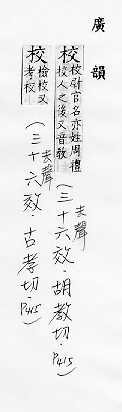 廣韻
校 校尉官名亦姓周禮
校人之後又音敎
去聲
(三十六效．胡教切．P415)
校 檢校又
考校
去聲
(三十六效．古孝切．P415)